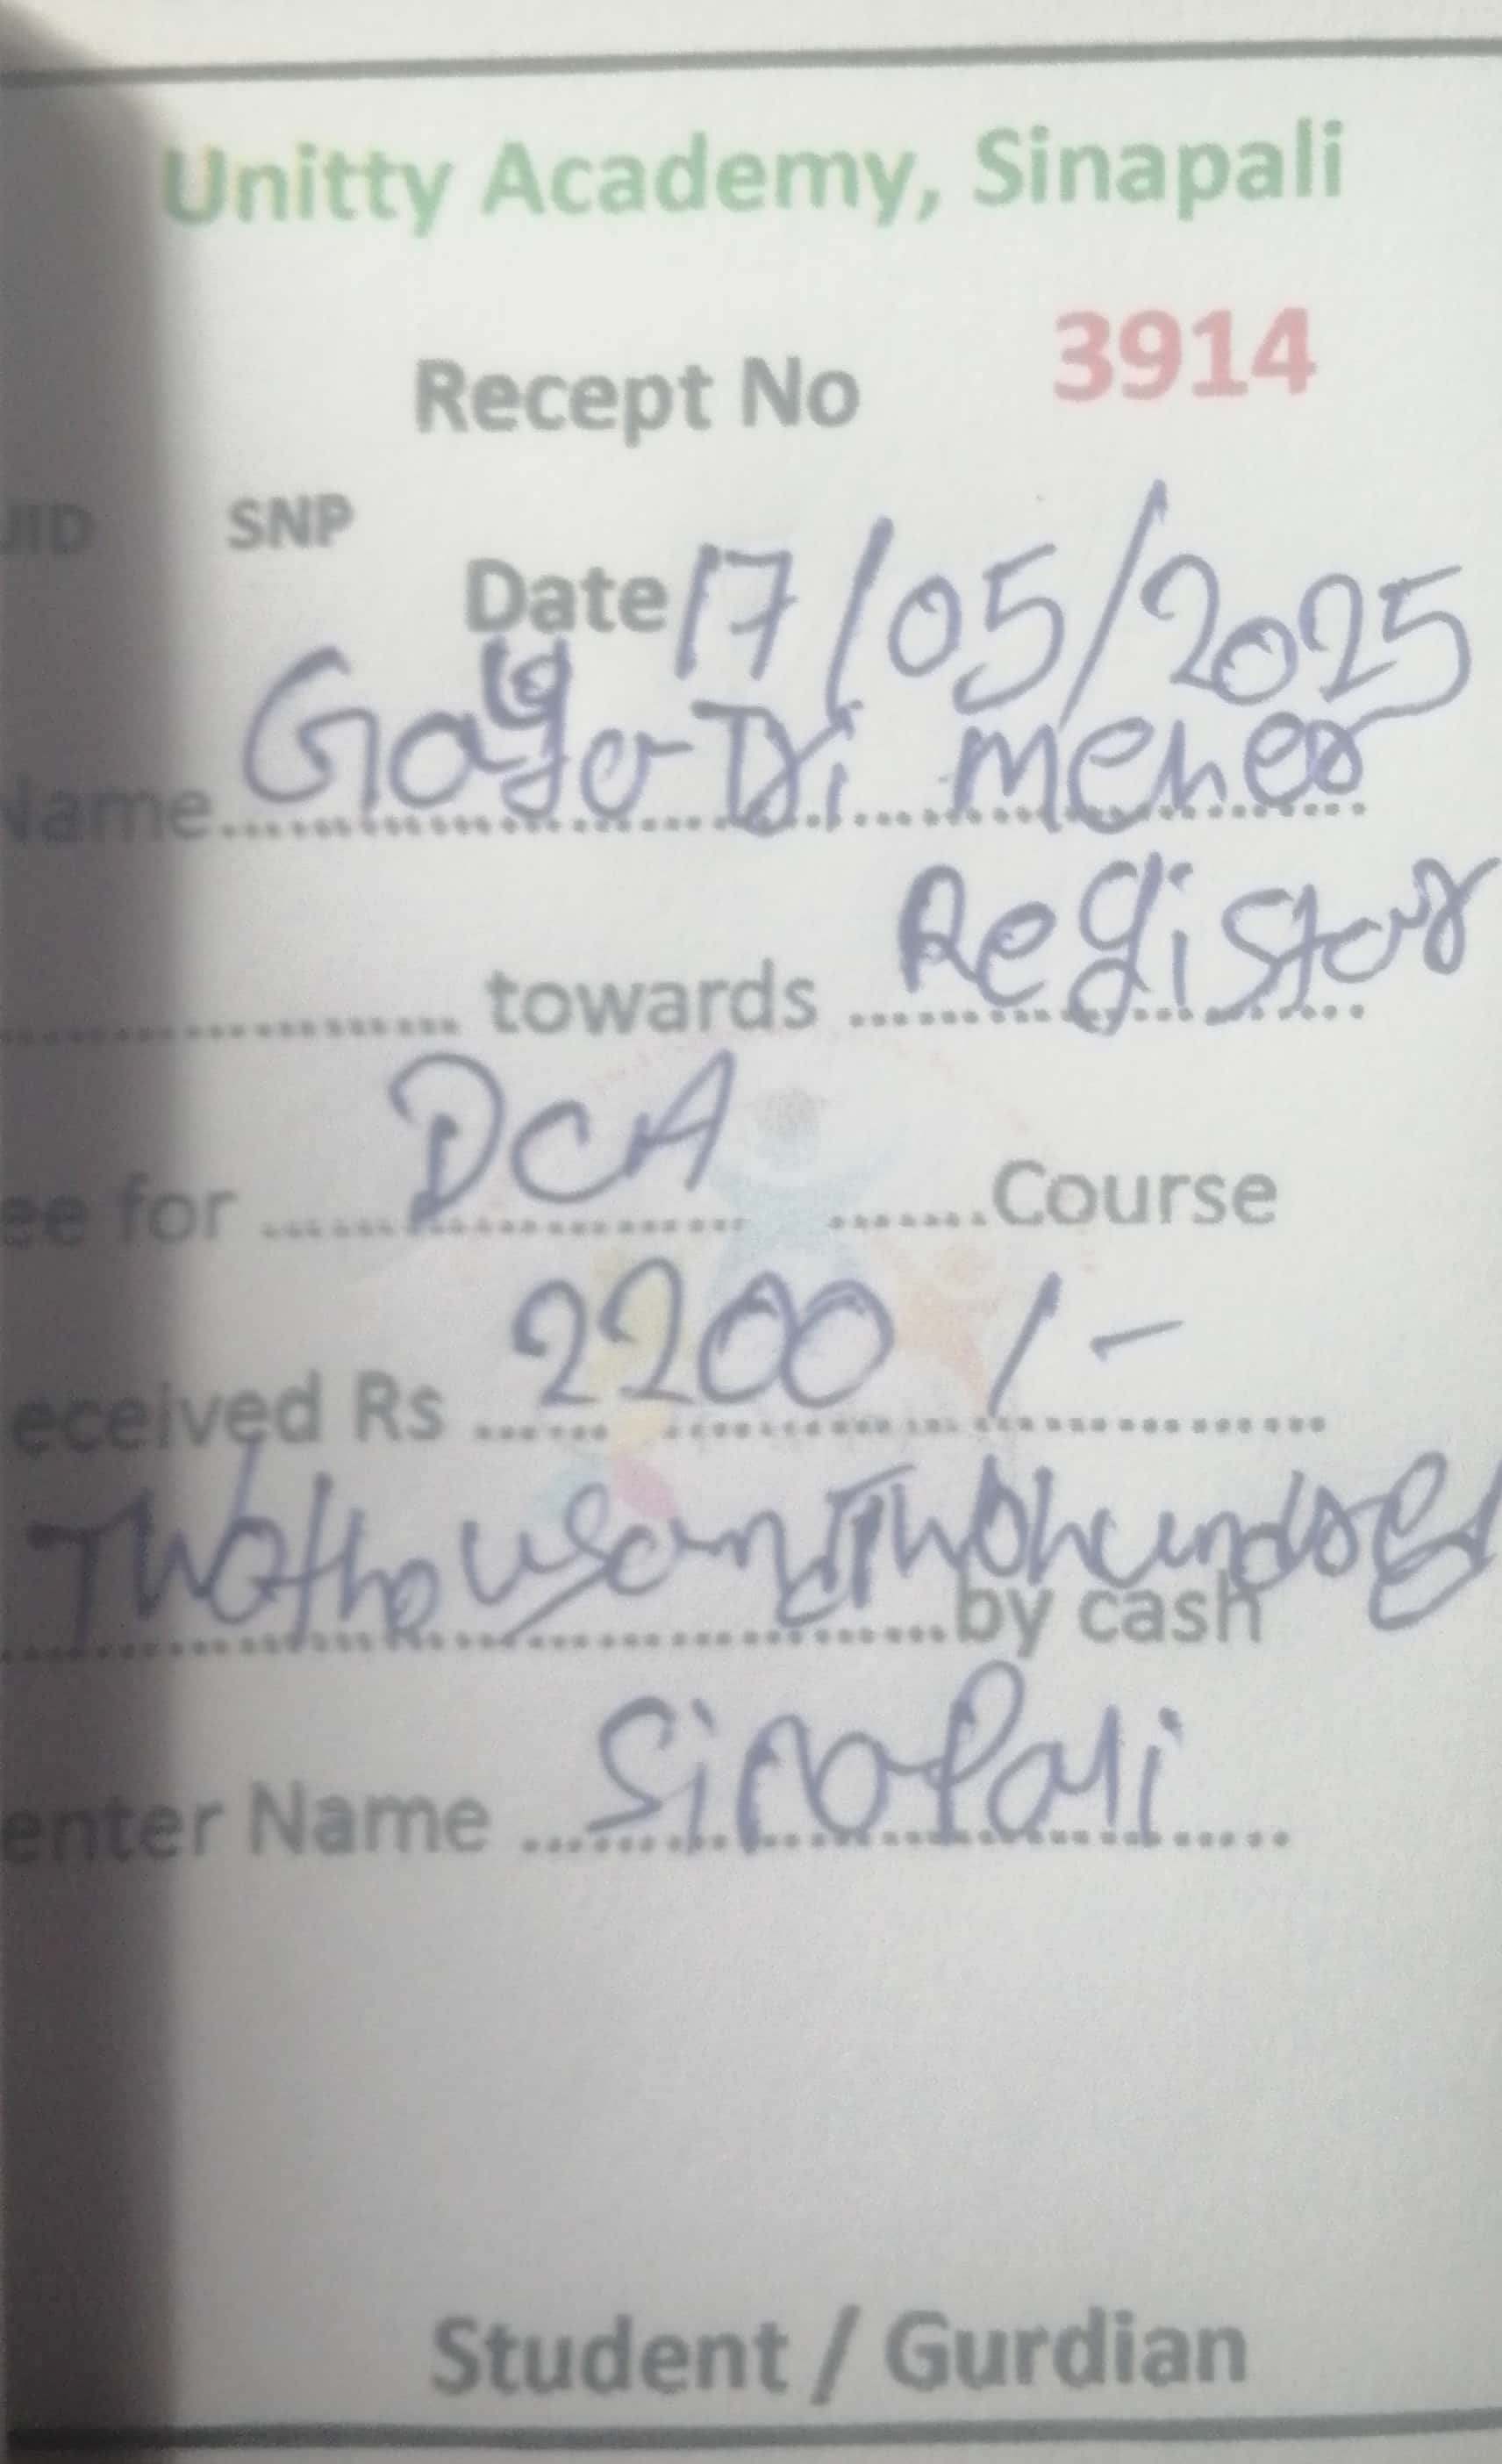 Unitty Academy, Sinapali
Recept No 3914
UID SNP
Date 17/05/2025
Name Gayatri meher
towards Registar
ee for DCA Course
eceived Rs 2200 /-
Twothousand Twohundred by cash
enter Name Sinapali
Student / Gurdian